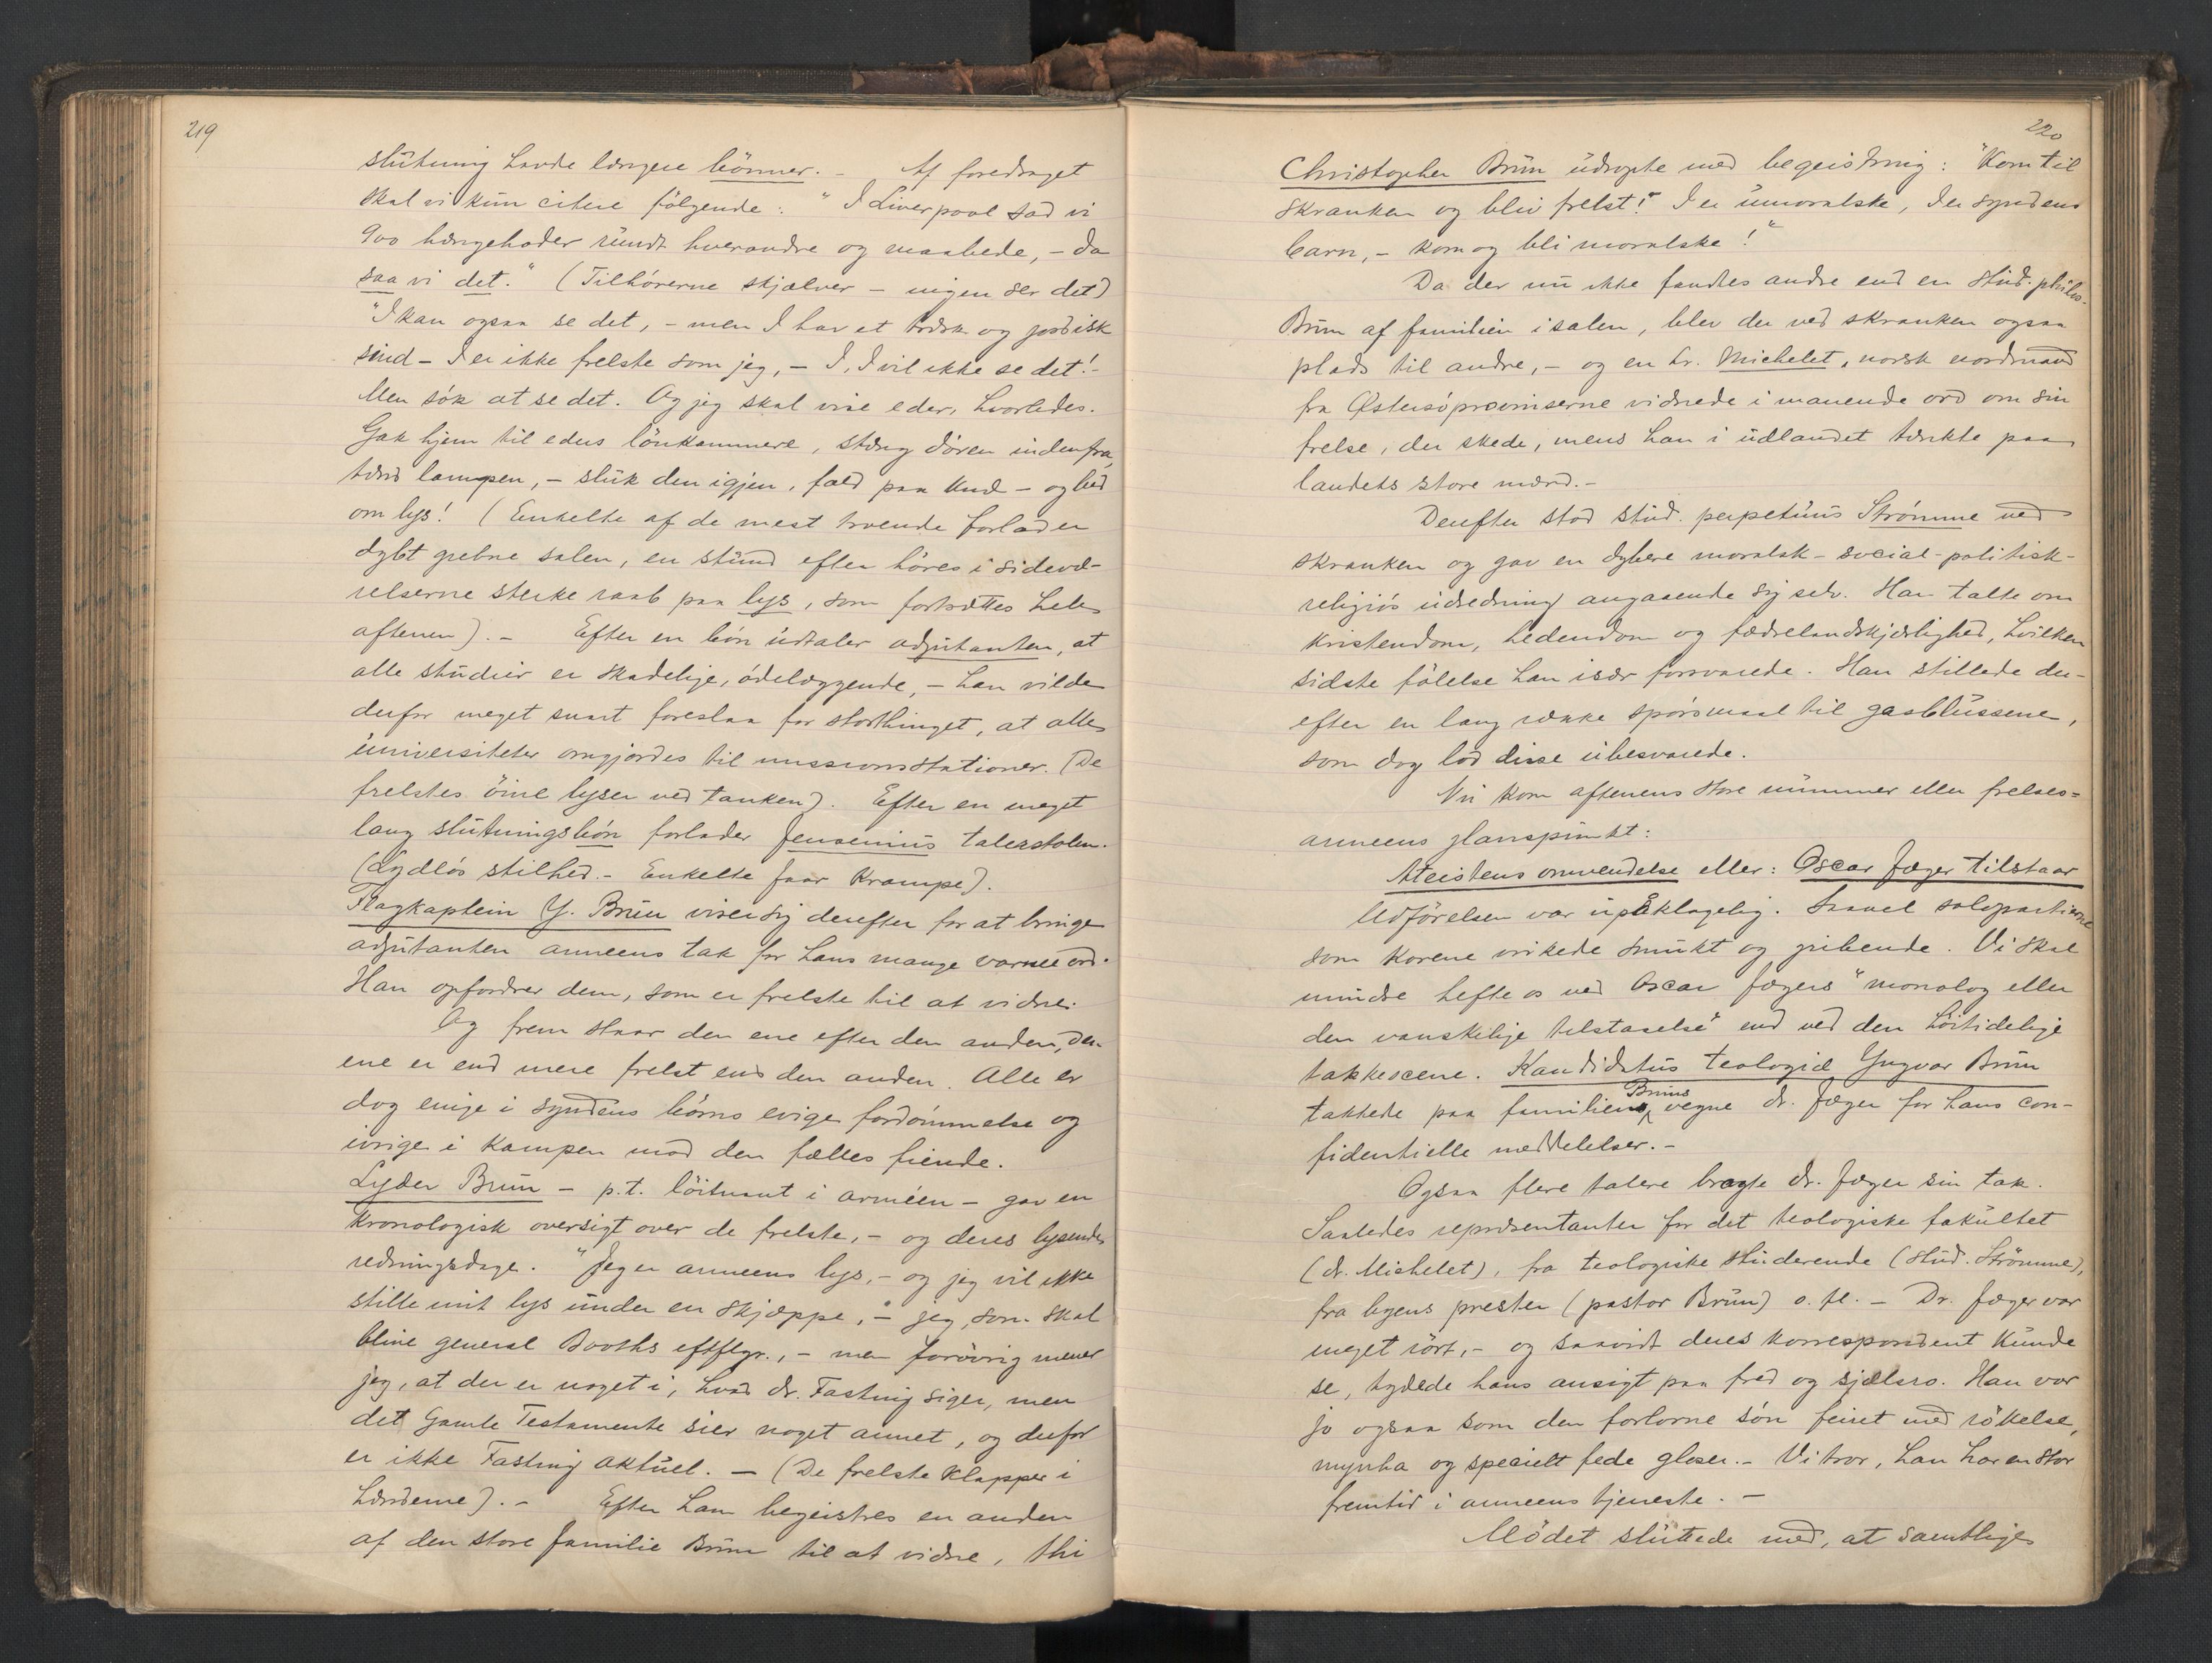 219
slutning havde længere bönner. – Af foredraget
skal vi kun citere fölgende: "I Liverpool sad vi
900 hængehoder rundt hverandre og maabede, – da
saa vi det." (Tilhörerne skjælver – ingen ser det)
"I kan ogsaa se det, – men I har et træsk og jordisk
sind – I er ikke frelste som jeg, – I, I vil ikke se det! –
Men sök at se det. Og jeg skal vise eder, hvorledes.
Gak hjem til eders lönkammere, stæng dören indenfra,
tænd lampen, – sluk den igjen, fald paa knæ – og bed
om lys! (Enkelte af de mest troende forlader
dybt grebne salen, en stund efter höres i sidevæ-
relserne sterke raab paa lys, som fortsættes hele
aftenen). – Efter en bön udtaler adjutanten, at
alle studier er skadelige, ödelæggende, – han vilde
derfor meget snart foreslaa for storthinget, at alle
universiteter omgjordes til missionsstationer. (De
frelstes öine lyser ved tanken). Efter en meget
lang slutningsbön forlader Jensenius talerstolen.
(Lydlös stilhed. – Enkelte faar Krampe).
Flagkaptein Y. Brun viser sig derefter for at bringe
adjutanten armeens tak for hans mange varme ord.
Han opfordrer dem, som er frelste til at vidne.
Og frem staar den ene efter den anden, den
ene er end mere frelst end den anden. Alle er
dog enige i syndens börns evige fordömmelse og
ivrige i kampen mod den fælles fiende.
Lyder Brun – p.t. löitnant i arméen – gav en
kronologisk oversigt over de frelste, – og deres lysende
redningsdage. "Jeg er armeens lys, – og jeg vil ikke
stille mit lys under en skjæppe, – jeg, som skal
blive general Booths eftflgr., – men forövrig mener
jeg, at der er noget i, hvad dr. Fasting siger, men
det Gamle Testamente sier noget annet, og derfor
er ikke Fasting aktuel. – (De frelste klapper i
hænderne). – Efter ham begeistres en anden
af den store familie Brun til at vidne, thi
220
Christopher Brun udropte med begeistring: "Kom til
skranken og bliv frelst! I er umoralske, I er syndens
barn, – kom og bli moralske!"
Da der nu ikke fandtes andre end en stud. philos.
Brun af familien i salen, blev der ved skranken ogsaa
plads til andre, – og en hr. Michelet, norsk nordmand
fra Østersöprovinserne vidnede i manende ord om sin
frelse, der skede, mens han i udlandet tænkte paa
landets store mænd. –
Derefter stod stud. perpetuus Strömme ved
skranken og gav en dybere moralsk-social-politisk-
religiös udredning angaaende sig selv. Han talte om
kristendom, hedendom og fædrelandskjærlighed, hvilken
sidste fölelse han især forsvarede. Han stillede der-
efter en lang række spörsmaal til gasblussene,
som dog lod disse ubesvarede.
Nu kom aftenens store nummer eller frelses-
armeens glanspunkt:
Ateistens omvendelse eller: Oscar Jæger tilstaar
Udförelsen var upåklagelig. Saavel solopartierne
som korene virkede smukt og gribende. Vi skal
mindre hefte os ved Oscar Jægers "monolog eller
den vanskelige tilstaaelse" end ved den höitidelige
takkescene. Kandidatus teologiæ Yngvar Brun
takkede paa familiens Bruns vegne dr. Jæger for hans con-
fidentielle meddelelser. –
Ogsaa flere talere bragte dr. Jæger sin tak.
Saaledes repræsentanter for det teologiske fakultet
(dr. Michelet), fra teologiske studerende (stud. Strömme),
fra byens prester (pastor Brun) o. fl. – Dr. Jæger var
meget rört, – og saavidt deres korrespondent kunde
se, tydede hans ansigt paa fred og sjælero. Han var
jo ogsaa som den forlorne sön feiret med rökelse,
myrrha og specielt fede gloser. – Vi tror, han har en stor
fremtid i armeens tjeneste. –
Mödet sluttede med, at samtlige